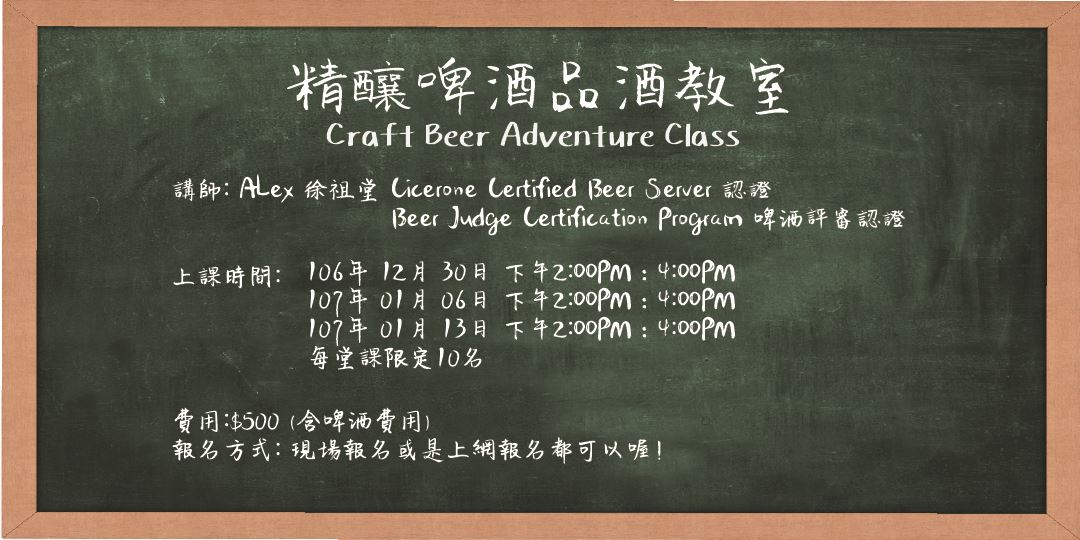 精釀啤酒品酒教室
Craft Beer Adventure Class
講師: ALex 徐祖堂 Cicerone Certified Beer Server 認證
Beer Judge Certification Program 啤酒評審認證
上課時間: 106年 12月 30日 下午2:00PM : 4:00PM
107年 01月 06日 下午2:00PM : 4:00PM
107年 01月 13日 下午2:00PM : 4:00PM
每堂課限定10名
費用:$500 (含啤酒費用)
報名方式: 現場報名或是上網報名都可以喔!